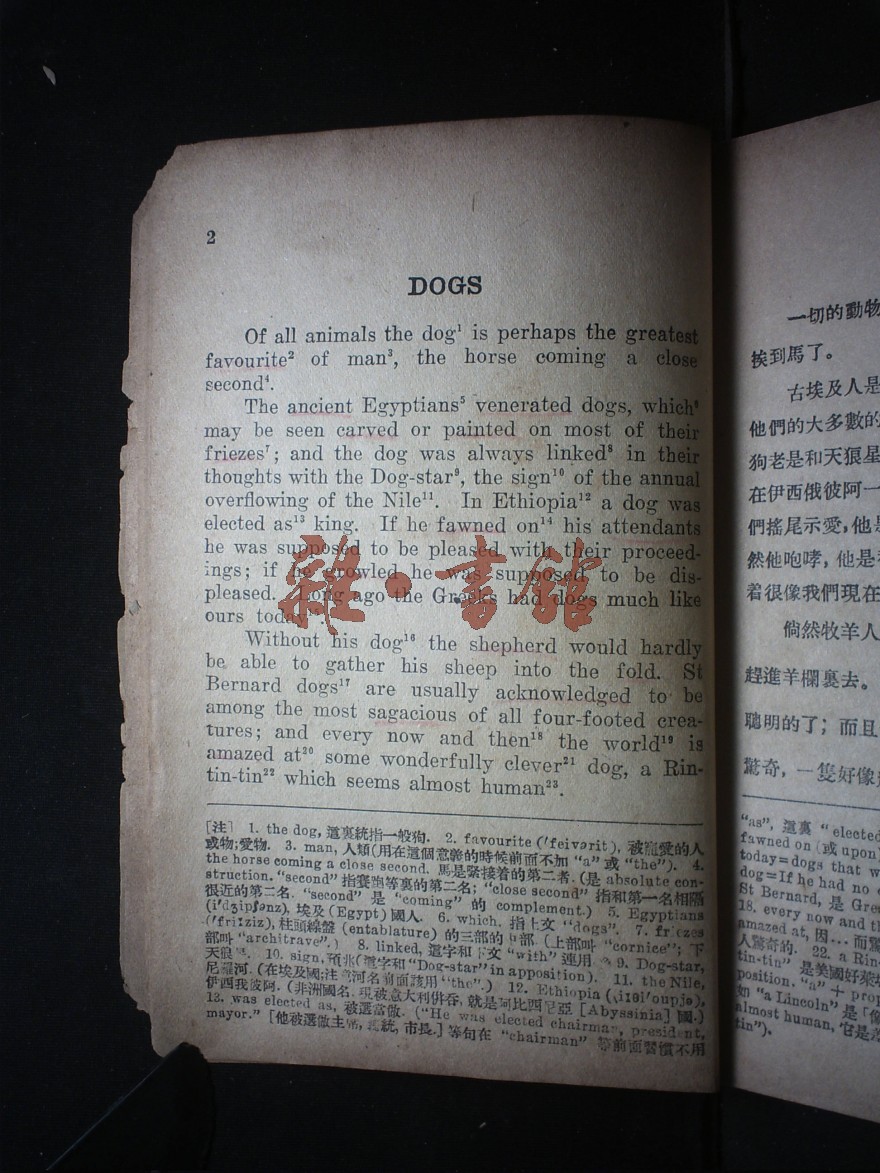 2
DOGS
Of all animals the dog¹ is perhaps the greatest
favourite² of man³, the horse coming a close
second⁴.
The ancient Egyptians⁵ venerated dogs, which⁶
may be seen carved or painted on most of their
friezes⁷; and the dog was always linked⁸ in their
thoughts with the Dog-star⁹, the sign¹⁰ of the annual
overflowing of the Nile¹¹. In Ethiopia¹² a dog was
elected as¹³ king. If he fawned on¹⁴ his attendants
he was supposed to be pleased with their proceed-
ings; if he growled he was supposed to be dis-
pleased. Long ago the Greeks had dogs much like
ours today
Without his dog¹⁶ the shepherd would hardly
be able to gather his sheep into the fold. St
Bernard dogs¹⁷ are usually acknowledged to be
among the most sagacious of all four-footed crea-
tures; and every now and then¹⁸ the world¹⁹ is
amazed at²⁰ some wonderfully clever²¹ dog, a Rin-
tin-tin²² which seems almost human²³.
[注] 1. the dog, 這裏統指一般狗. 2. favourite ('feivərit), 被寵愛的人
或物; 愛物. 3. man, 人類 (用在這個意義的時候前面不加 "a" 或 "the"). 4.
the horse coming a close second. 馬是緊接着的第二者. (是 absolute con-
struction. "second" 指賽跑等裏的第二名; "close second" 指和第一名相隔
很近的第二名. "second" 是 "coming" 的 complement.) 5. Egyptians
(i'dʒipʃənz), 埃及 (Egypt) 國人. 6. which. 指上文 "dogs". 7. friezes
('fri:ziz), 柱頭線盤 (entablature) 的三部的 部. (上部叫 "cornice"; 下
部叫 "architrave".) 8. linked, 這字和下文 "with" 連用. 9. Dog-star,
天狼星. 10. sign, 預兆 (這字和 "Dog-star" in apposition). 11. the Nile,
尼羅河. (在埃及國; 注意河名前面該用 "the".) 12. Ethiopia
伊西我彼阿. (非洲國名. 現被意大利併吞, 就是阿比西尼亞 [Abyssinia] 國.)
13. was elected as, 被選當做. ("He was elected chairman, president,
mayor." [他被選做主席, 總統, 市長.] 等句在 "chairman" 等前面習慣不用
一切的動物
挨到馬了。
古埃及人是
他們的大多數的
狗老是和天狼星
在伊西俄彼阿一
們搖尾示愛, 他是
然他咆哮, 他是
着很像我們現在
倘然牧羊人
趕進羊欄裏去。
聰明的了; 而且
驚奇, 一隻好像
"as", 這裏 "elected
fawned on (或 upon)
today=dogs that w
dog=If he had no
St Bernard, 是 Gre
18. every now and th
amazed at, 因... 而驚
人驚奇的. 22. a Rin
tin-tin" 是美國好萊塢
position. "a" + prop
如 "a Lincoln" 是「像
almost human, 它是差
tin").
雜·書館